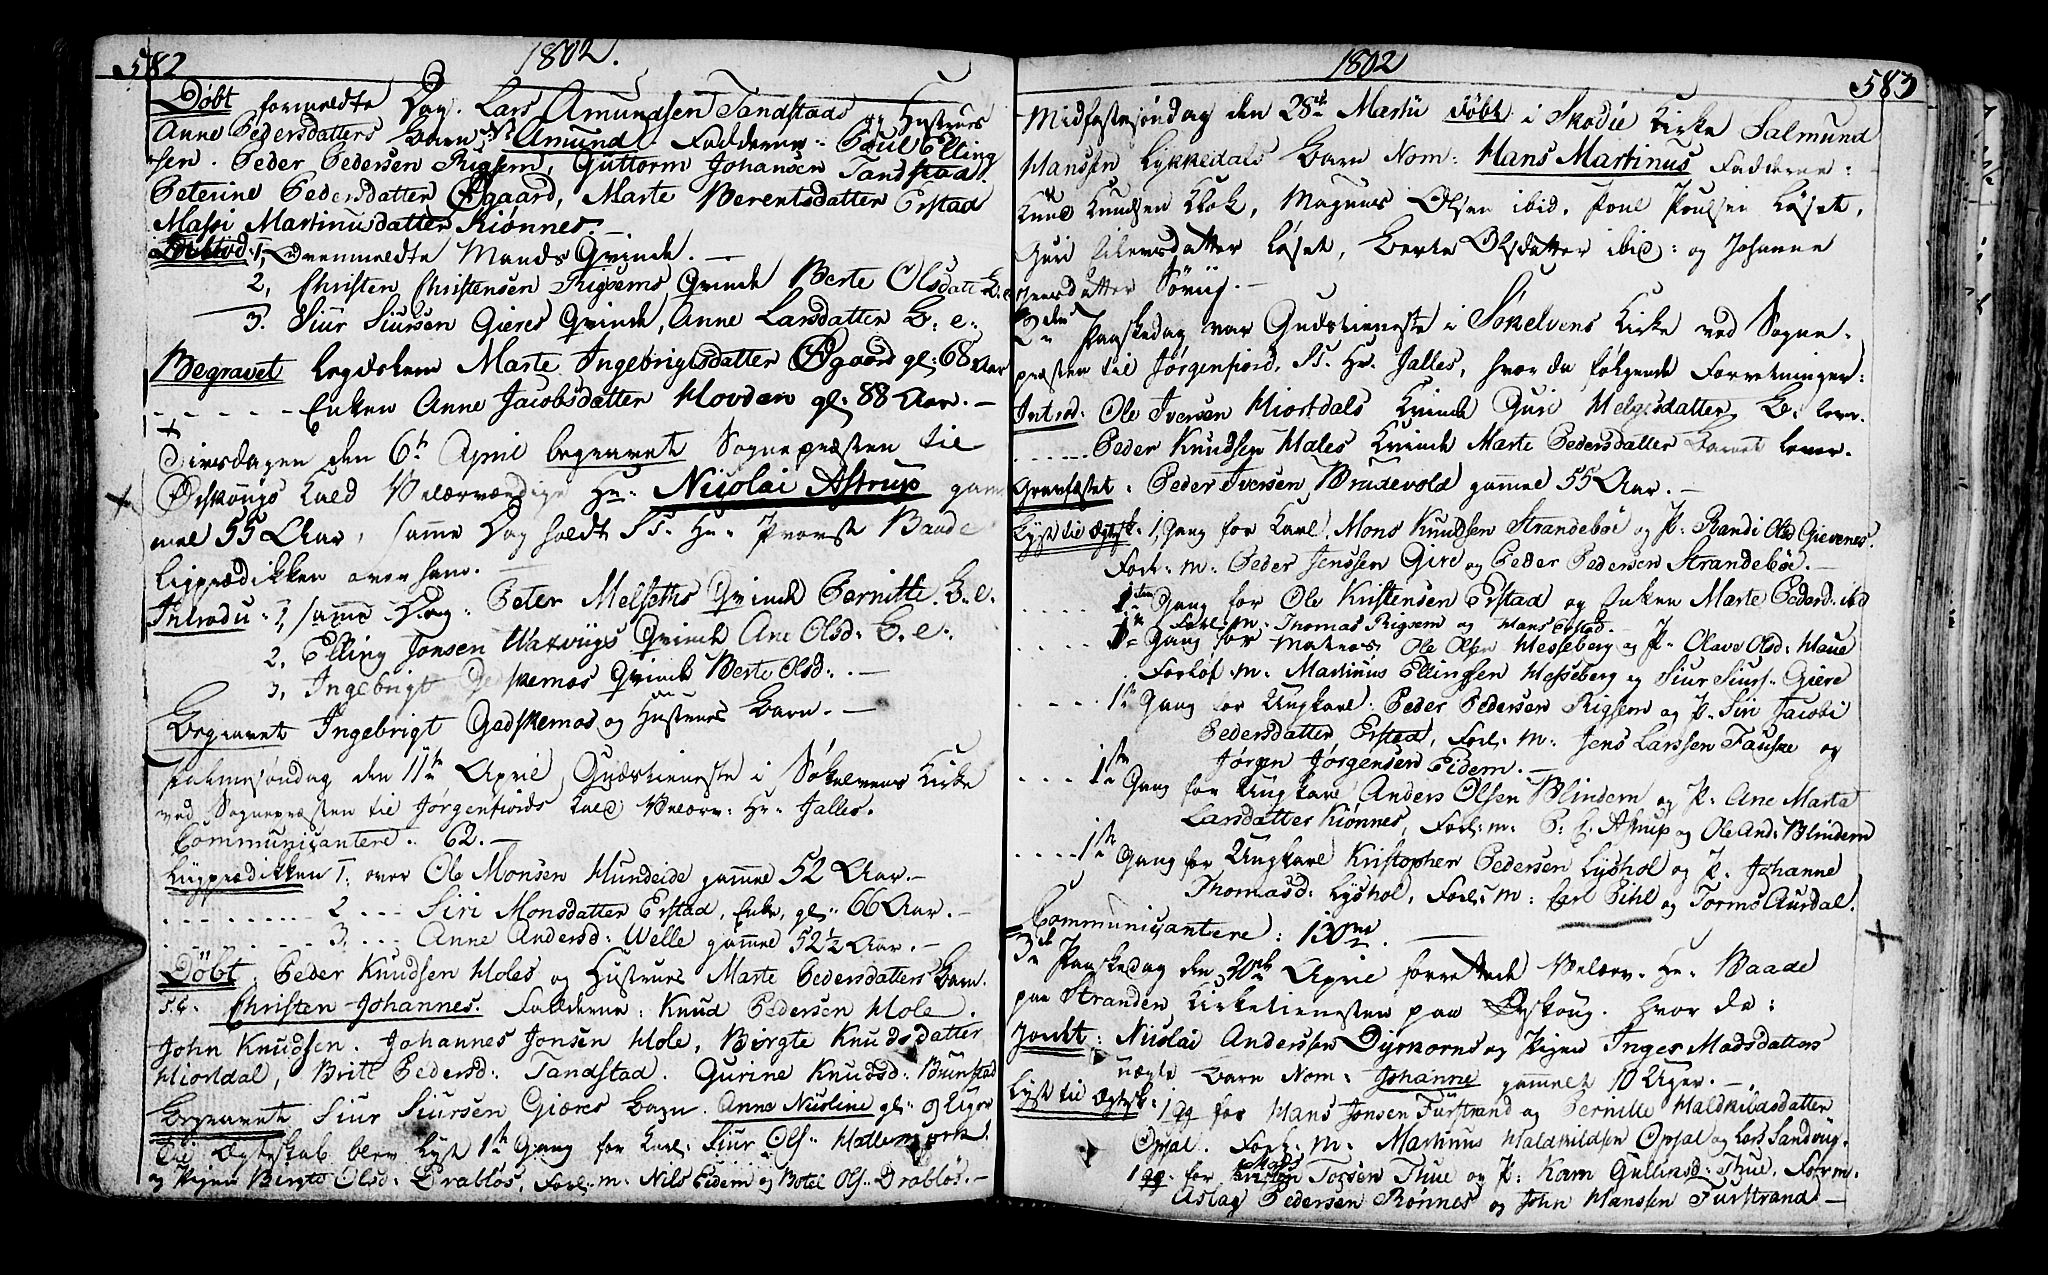 582
1802.
Døbt formeldte Dag. Lars Amundsen Tandstads og Hustrues
Anne Pedersdatters Barn N. Amund. Fadderne: Poul Elling
sen. Peder Pedersen Rigsem, Guttorm Johansen Tandstad.
Peterine Pedersdatter Øgaard, Marte Berentsdatter Erstad
Massi Martinusdatter Kiønnes. —
Introd: 1, Ovenmeldte Mands Qvinde. —
2, Christen Christensen Rigsems Qvinde Berte Olsdatt B: e
3. Siur Siursen Gieres Qvinde, Anne Larsdatter B: e:
Begravet Legdslem Marte Ingebrigtsdatter Øgaard gl: 68 Aar
- - - - - Enken Anne Jacobsdatter Hovdan gl: 88 Aar. —
Tirsdagen den 6te April begravet Sognepræsten til
Ørskougs Kald Velærværdige Hr: Nicolai Astrup gam
mel 55 Aar, samme Dag holdt Hr: Provst Baade
Ligprædikken over ham. —
Introdu: 1, samme Dag: Peter Melseths Qvinde Pernille B: e:
2, Elling Jonsen Vaxvigs Qvinde Ane Olsd: B: e:
3, Ingebrigt Gedskemos Qvinde Berte Olsd: —
Begravet Ingebrigt Gedskemos og Hustrues Barn. —
Palmesøndag den 11te April Gudstieneste i Søkelvens Kirke
ved Sognepræsten til Jørgenfiords Kald Velærv: Hr: Jalles.
Communicantere: 62. —
Liigprædikken 1: over Ole Monsen Hundeide gammel 52 Aar. —
- - - - 2 - - Siri Monsdatter Erstad, Enke, gl: 66 Aar. —
- - - - 3, - - Anne Andersd: Welle gammel 52 1/2 Aar. —
Døbt, Peder Knudsen Holes og Hustrues Marte Pedersdatters Barn
Christen Johannes. Fadderne: Knud Pedersen Hole.
John Knudsen. Johannes Jonsen Hole, Birgte Knudsdatter
Hiortdal, Britt Pedersd: Tandstad. Gurine Knudsd:
Begravet Siur Siursen Gieres Barn. Anne Nicoline gl: 9 Uger
Til Ægteskab blev Lyst 1te Gang for Karl: Siur Ols: Hallemork
og Pigen Birgte Olsd: Drabløs, Forl: m: Nils Eidem og Botel Ols: Drabløs. —
1802
583
Midfastesøndag den 28de Martii Døbt i Skodie Kirke Salmund
Hansen Lykkedals Barn Nom: Hans Martinus Fadderne:
Knud Knudsen Klok, Magnus Olsen ibid, Poul Poulsen Løset,
Guri Siversdatter Løset, Berte Olsdatter ibid: og Johanne
Jensdatter Sørvig. —
2den Paaskedag var Gudstieneste i Søkelvens Kirke ved Sogne-
præsten til Jørgenfiord, Hr. Jalles, hvor da følgende Forretninger:
Introd: Ole Iversen Hiortdals Kvinde Guri Helgesdatter, B: lever
- - - - Peder Knudsen Holes Kvinde Marte Pedersdatter Barnet lever.
Gravfæstet: Peder Iversen Brudevold gammel 55 Aar. —
Lyst til Ægtesk: 1, Gang for Karl. Mons Knudsen Strandebøe og P: Randi Olsd Gievenes.
Forl: m: Peder Jenssen Gire og Peder Pedersen Strandebøe. —
- - - - 1te Gang for Ole Kristensen Erstad og Enken Marte Pedersd: ibd
Forl: m: Thomas Rigsem og Hans Erstad.
- - - - 1te Gang for Ole Olsen Hesseberg og P: Olave Olsd: Haue
Forlof m: Martinus Ellingsen Hesseberg og Siur Siurs: Giere
- - - - 1te Gang for Ungkarl: Peder Pedersen Rigsem og P. Siri Jacobi
Pedersdatter Erstad, Forl: m: Jens Larssen Fauske og
Jørgen Jørgensen Eidem. —
- - - - 1te Gang for Ungkarl Anders Olsen Blindem og P: Ane Marta
Larsdatter Kiønnes, Forl: m: P: C. Astrup og Ole And: Blindem
- - - - 1te Gang for Ungkarl Kristopher Pedersen Lyshol og P. Johanne
Thomasd: Lyshol, Forl: m: Carl Pihl og Tormo Aursdal.
Communicantere: 130
3de Paaskedag den 20de April forrettede Velærv: Hr: Baade
paa Stranden Kirketienesten paa Ørskoug. Hvor da:
Jordet: Nicolai Andersen Dyrkorns og Pigen Inger Madsdatters
uægte Barn Nom: Johanne gammelt 10 Uger. —
Lyst til Ægtesk: 1 gg for Hans Jonsen Furstrand og Pernille Haldkildsdatter
Opsal. Forl: m: Martinus Haldkildsen Opsal og Lars Sandvig.
1 gg: for Mads Torsen Thue og P: Karn Gulliksd: Thue, For: m:
Aslag Pedersen Rønnes og John Hanssen Furstrand —